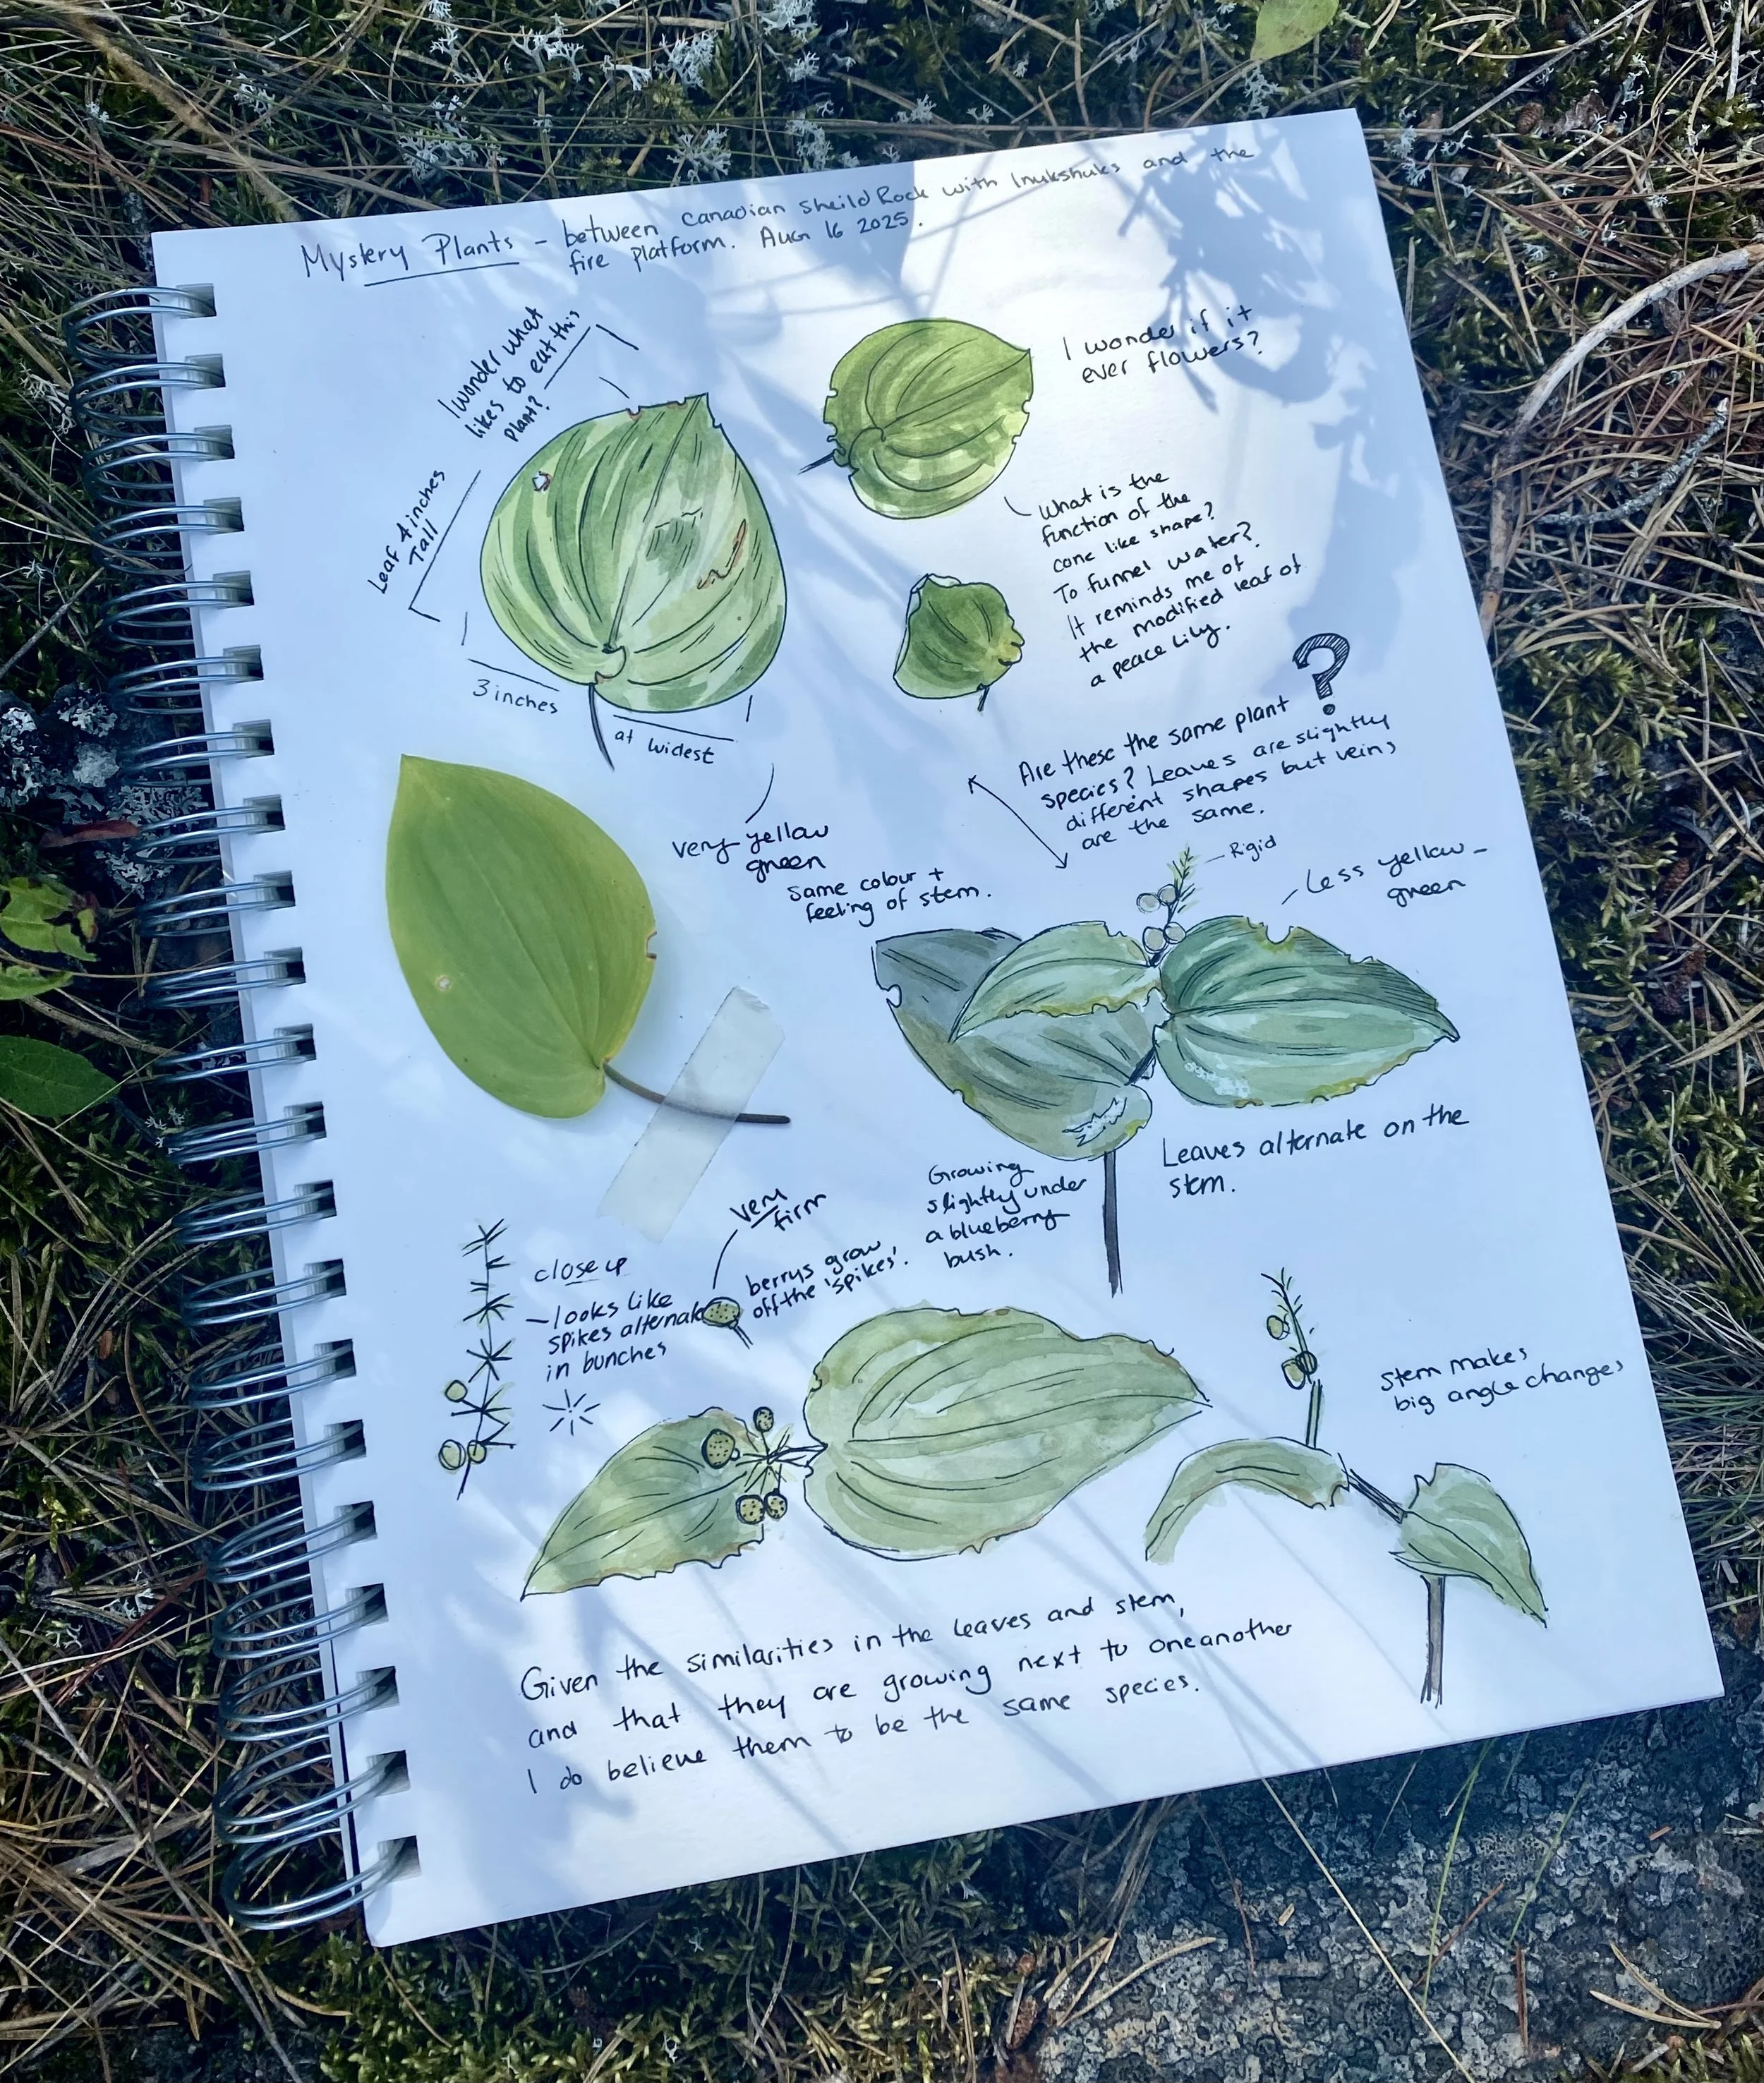 Mystery Plants - between Canadian Sheild Rock with Inukshuks and the
fire platform. Aug 16 2025.
I wonder what
likes to eat this
plant?
I wonder if it
ever flowers?
Leaf 4 inches
Tall
3 inches
at widest
What is the
function of the
cone like shape?
To funnel water?
It reminds me of
the modified leaf of
a peace lily.
?
Are these the same plant
species? Leaves are slightly
different shapes but veins
are the same.
very yellow
green
Same colour +
feeling of stem.
Rigid
Less yellow-
green
Leaves alternate on the
stem.
Growing
slightly under
a blueberry
bush.
very
firm
berrys grow
off the 'spikes'.
close up
- looks like
spikes alternate
in bunches
stem makes
big angle changes
Given the similarities in the leaves and stem,
and that they are growing next to oneanother
I do believe them to be the same species.